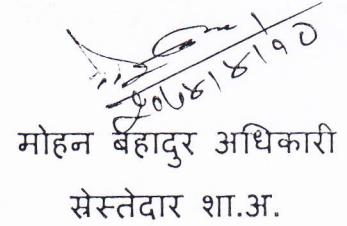 २०७४।४।१०
मोहन बहादुर अधिकारी
स्रेस्तेदार शा.अ.